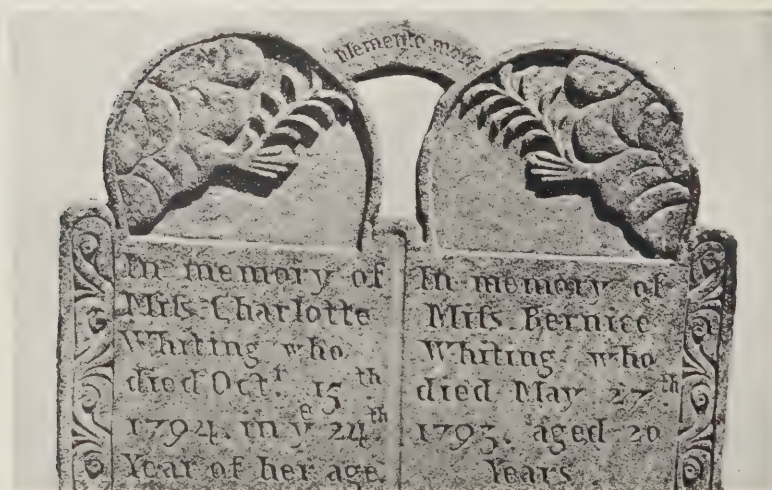 Memento mori
In memory of
Miſs Charlotte
Whiting who
died Oct.ʳ 15ᵗʰ
1794. in yᵉ 24ᵗʰ
Year of her age
In memory of
Miſs Bernice
Whiting who
died May 27ᵗʰ
1793. aged 20
Years